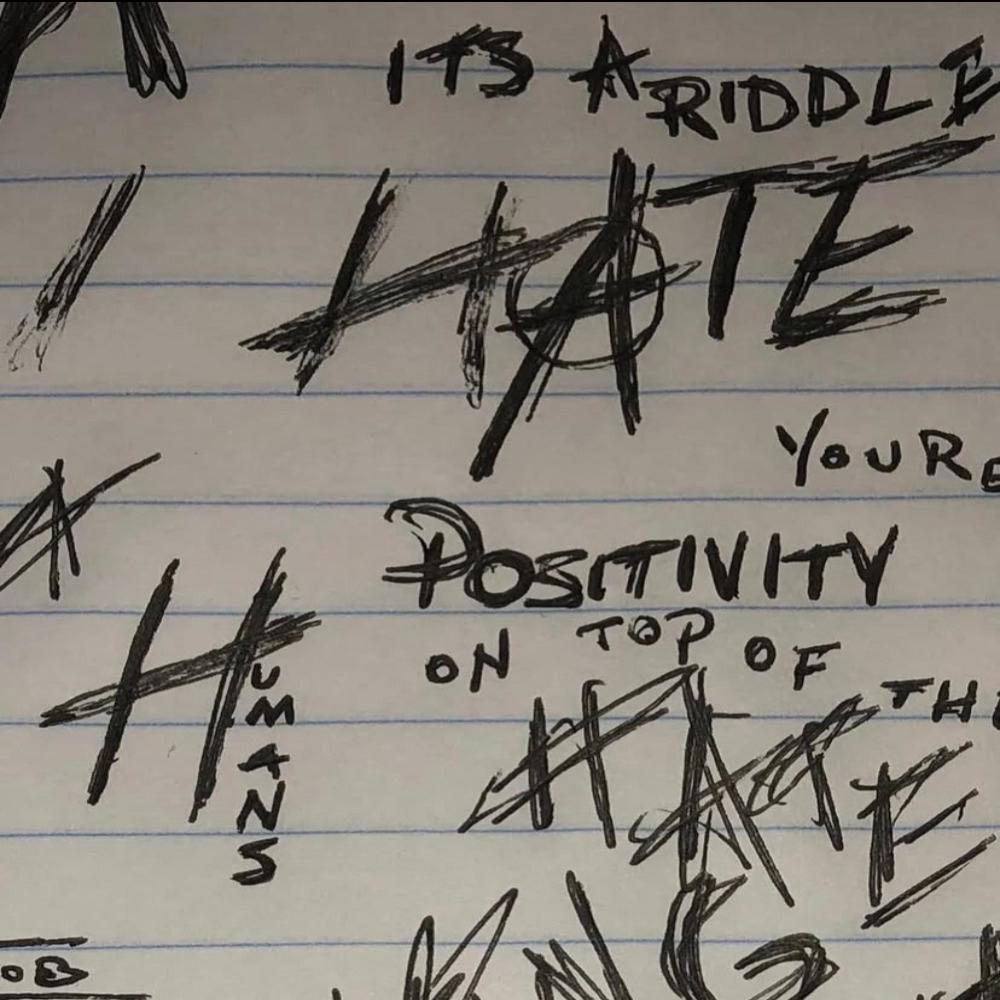 ITS A RIDDLE
HATE
YOURE
POSITIVITY
ON TOP OF THE
HATE
HUMANS